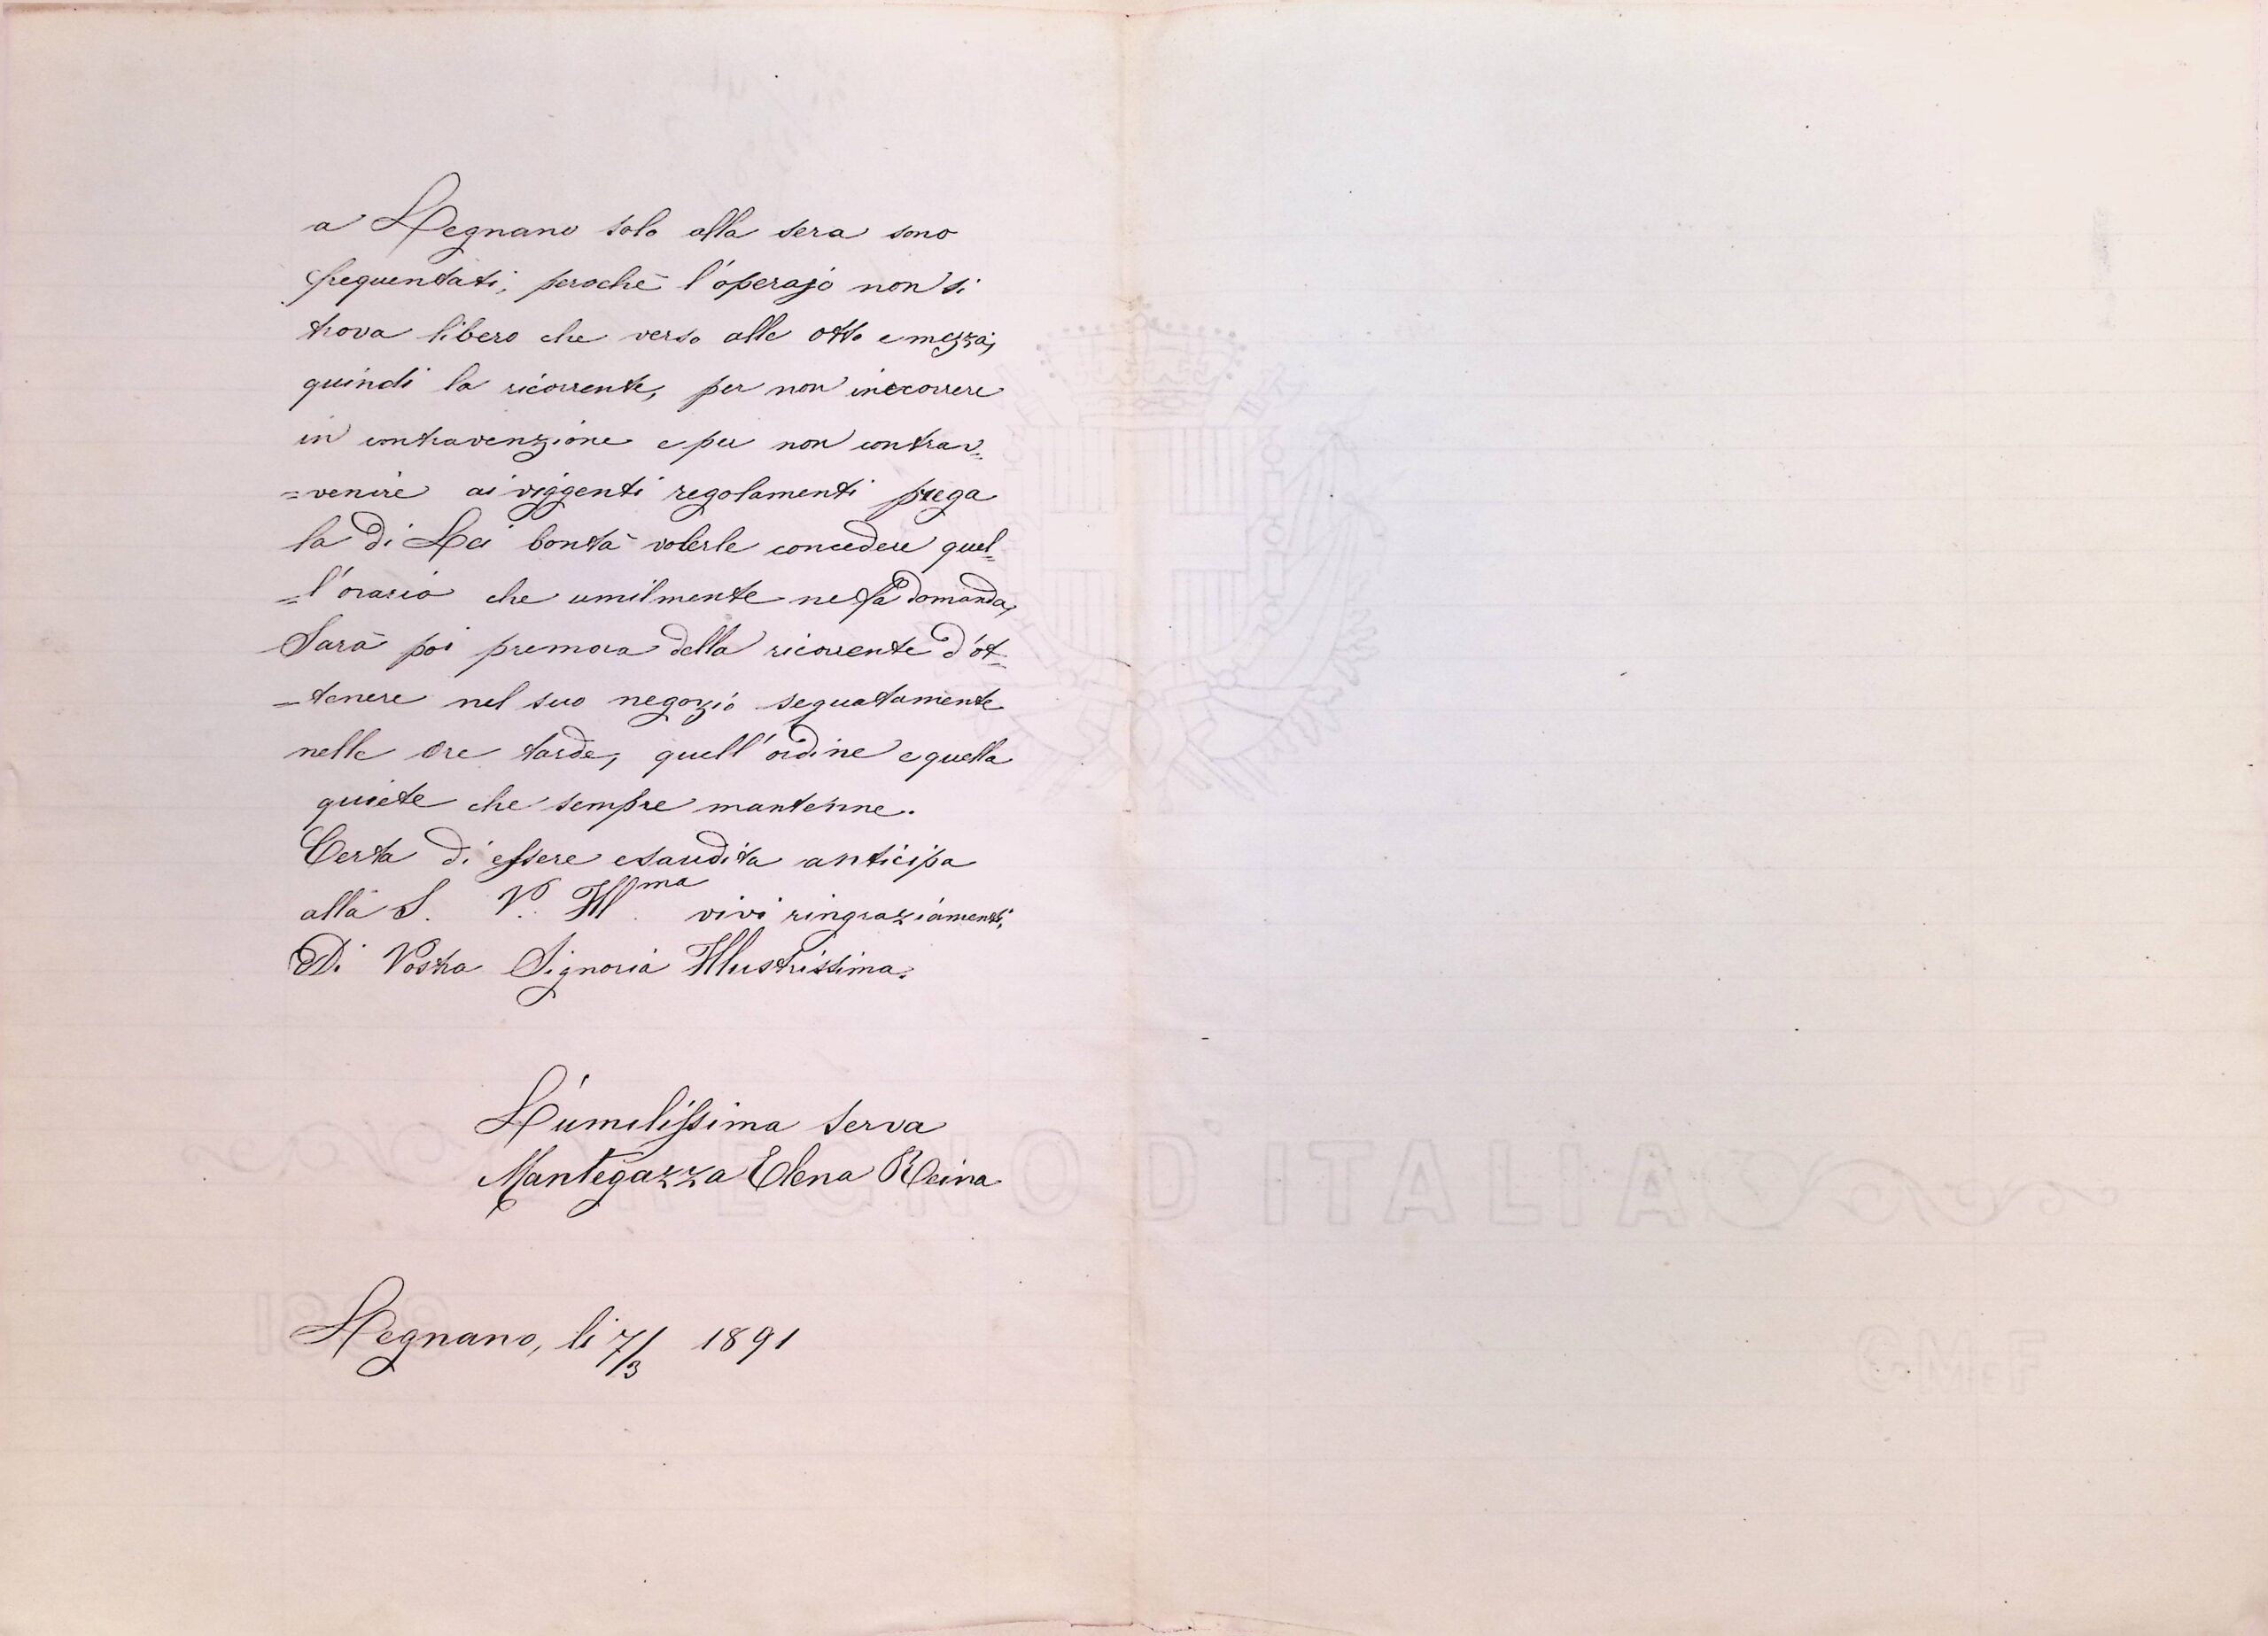 a Legnano solo alla sera sono
frequentati, perochè l'operajo non si
trova libero che verso alle otto e mezza,
quindi la ricorrente, per non incorrere
in contravenzione e per non contrav=
=venire ai viggenti regolamenti prega
la di Lei bontà volerle concedere quel=
=l'orario che umilmente ne fà domanda,
Sarà poi premora della ricorrente d'ot=
=tenere nel suo negozio seguatamente
nelle ore tarde, quell'ordine e quella
quiete che sempre mantenne.
Certa di essere esaudita anticipa
alla S. V. Ill.ma vivi ringraziamenti.
Di Vostra Signoria Illustrissima.
L'umilissima serva
Mantegazza Elena Reina
REGNO D ITALIA
Legnano, li 7/3 1891
C.M.F